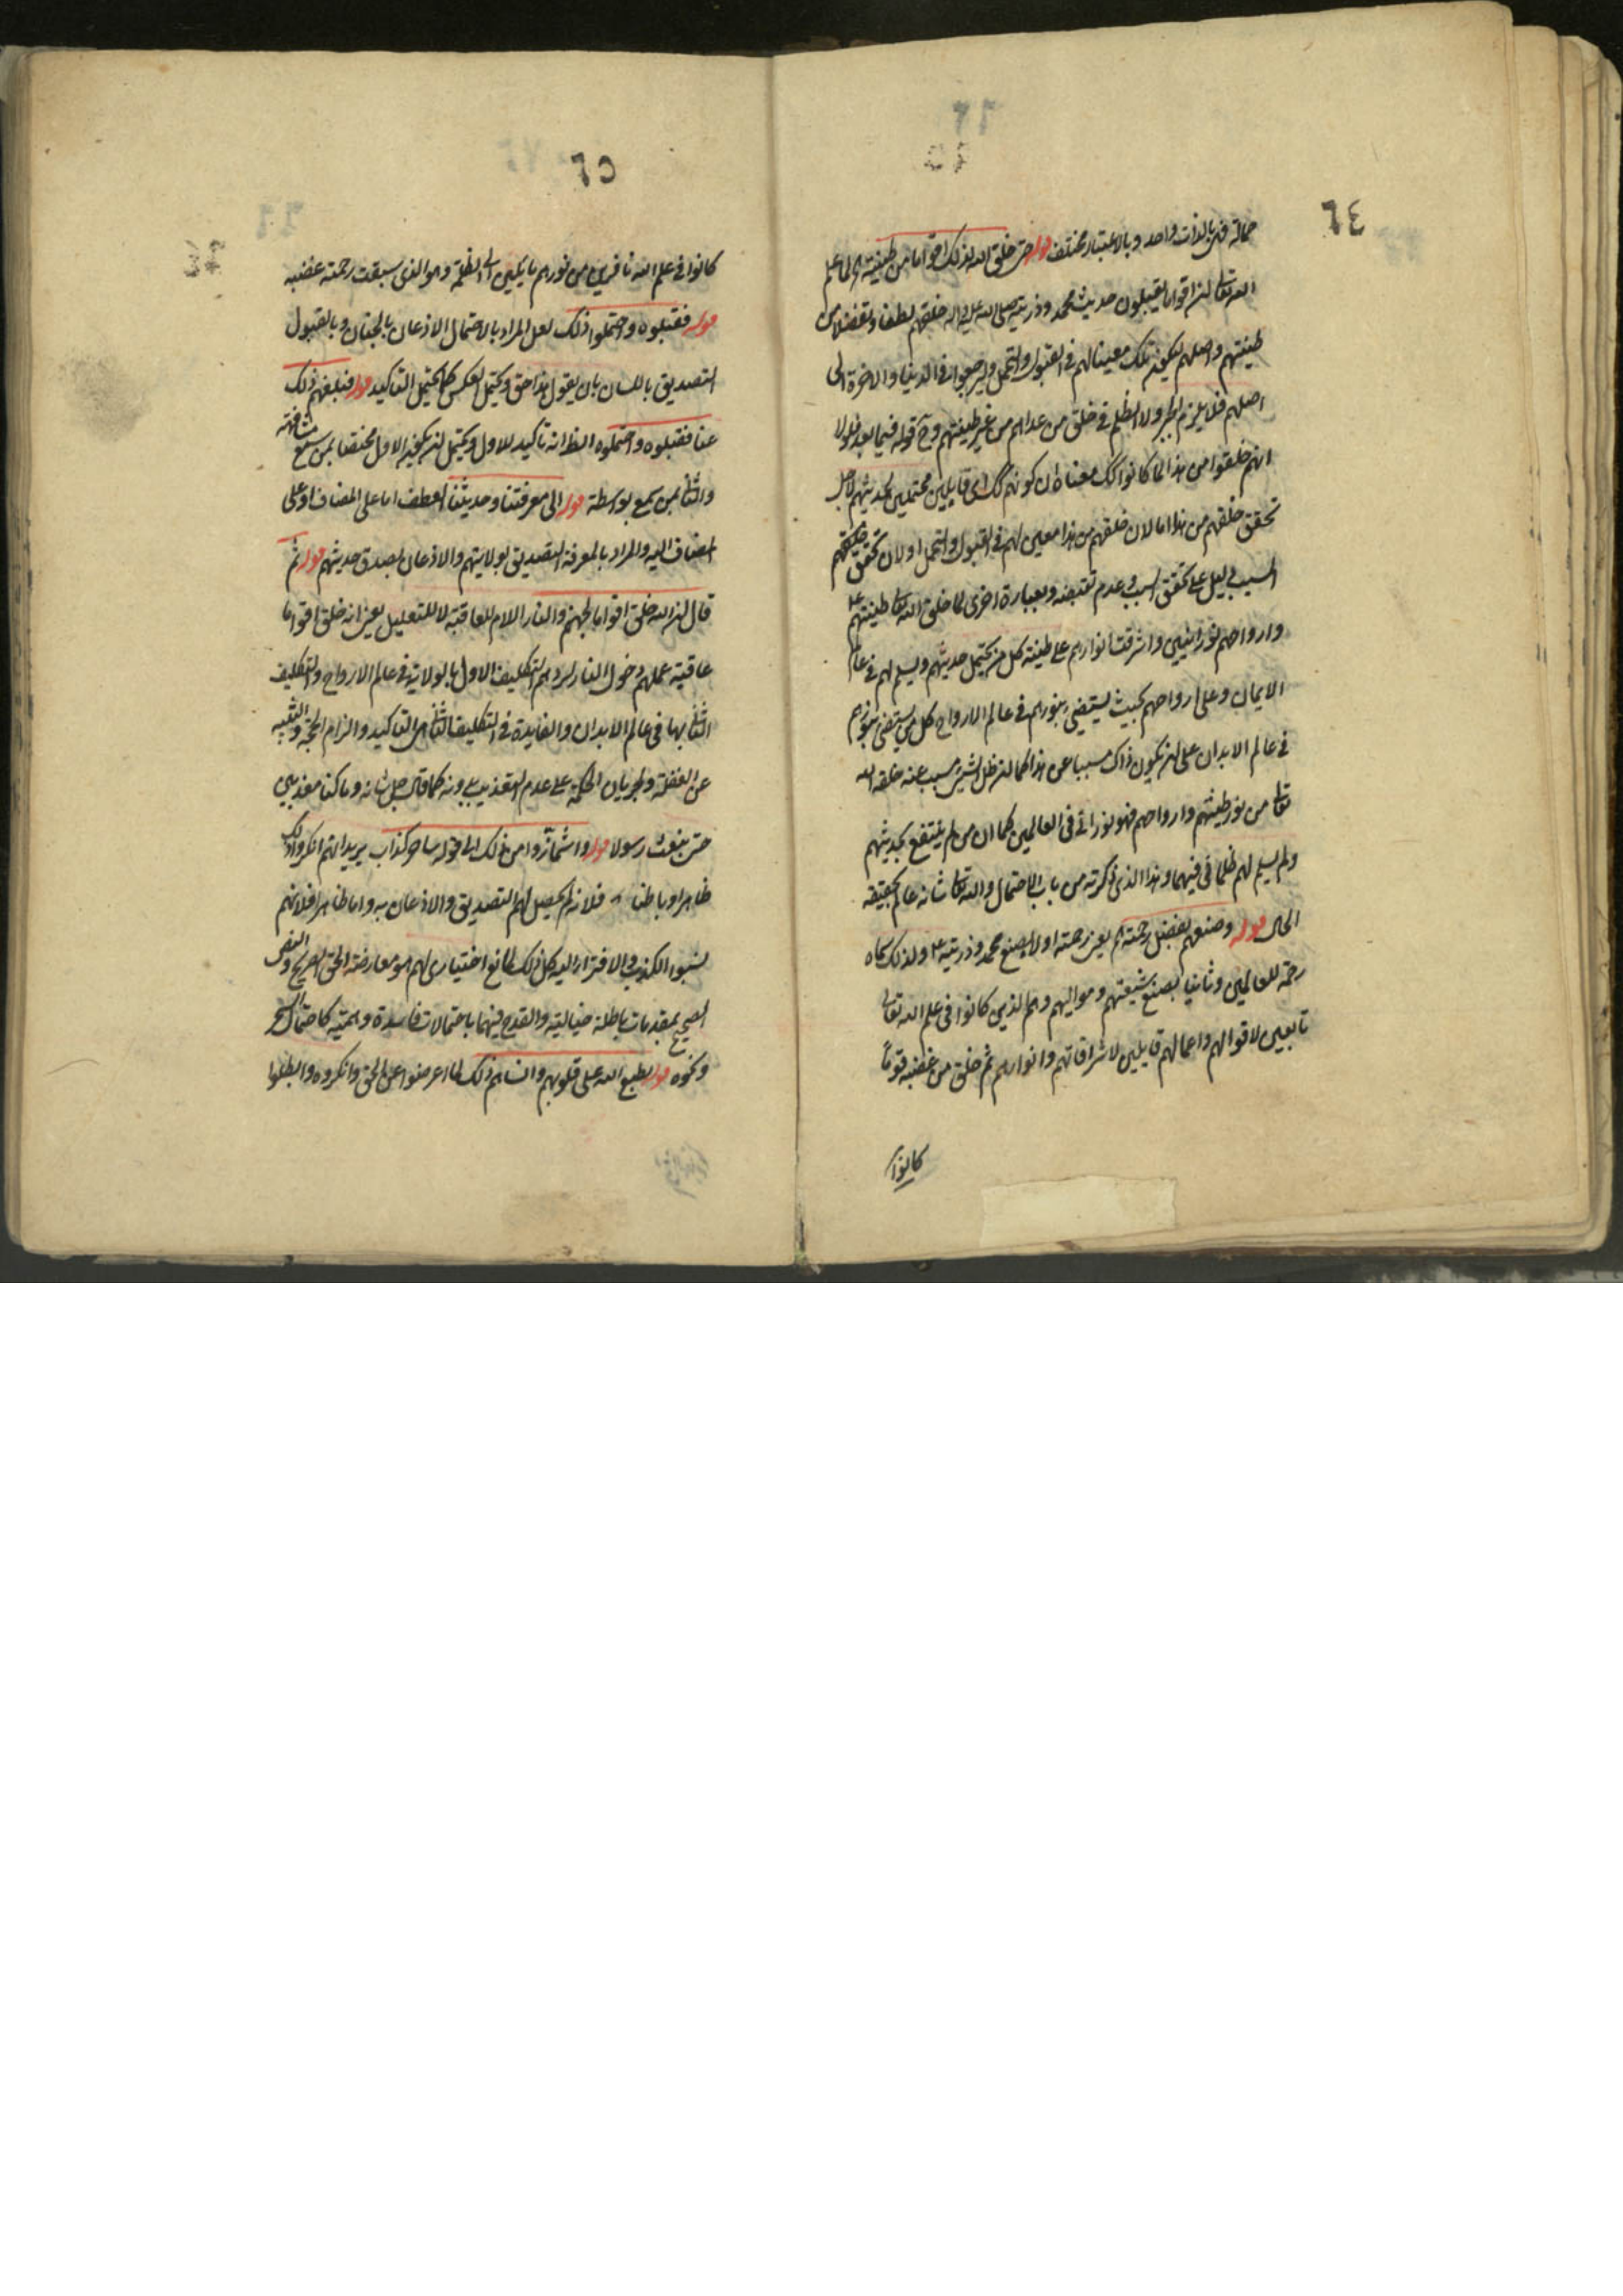 ٦٤
حماته فهى بالذات واحد وبالاعتبار مختلف قوله حتى خلق الله لذلك اقواما من طينتهم لما علم
الله تعالى ان اقواما يقبلون حديث محمد وذريته صلى الله عليه واله خلقهم لطفا وتفضلا من
طينتهم واصلهم ليكون ذلك معينا لهم فى القبول والتحمل وليرجعوا فى الدنيا والاخرة الى
اصلهم فلا يلزم الجبر ولا الظلم فى خلق من عداهم من غير طينتهم وح قوله فيما بعد فلولا
انهم خلقوا من هذا لما كانوا كك معناه ان كونهم كك اى قابلين محتملين لحديثهم لاجل
تحقق خلقهم من هذا اما لان خلقهم من هذا معين لهم فى القبول والتحمل او لان تحقق خلقهم
المسبب دليل على تحقق السبب وعدم نقيضه وبعبارة اخرى لما خلق الله تعالى طينتهم
وارواحهم نورانيين واشرقت انوارهم على طينة كل من يحتمل حديثهم ويسلم لهم فى عالم
الايمان وعلى ارواحهم بحيث يستضئ بنورهم فى عالم الارواح كل من يستضئ بنورهم
فى عالم الابدان على ان يكون ذاك مسببا عن هذا كما ان ظل الشئ مسبب عنه خلقه الله
تعالى من نور طينتهم وارواحهم فهو نورانى فى العالمين كما ان من لم ينتفع بحديثهم
ولم يسلم لهم ظلمانى فيهما وهذا الذى ذكرته من باب الاحتمال والله تعالى شانه عالم بحقيقة
الحال قوله وصنعهم بفضل رحمته يعنى رحمته اولا بصنع محمد وذريته ع ولذلك سماه
رحمة للعالمين وثانيا بصنع شيعتهم ومواليهم وهم الذين كانوا فى علم الله تعالى
تابعين لاقوالهم واعمالهم قابلين لاشراقاتهم وانوارهم ثم خلق من غضبه قوما
كانوا
٦٥
كانوا فى علم الله نافرين من نورهم مايلين الى الظلمة وهو الذى سبقت رحمته غضبه
قوله فقبلوه واحتملوا ذلك لعل المراد بالاحتمال الاذعان بالجنان وبالقبول
التصديق باللسان بان يقول هذا حق ويحتمل العكس كما يحتمل التاكيد قوله فبلغهم ذلك
عنا فقبلوه واحتملوه الظ انه تاكيد للاول ويحتمل ان يكون الاول مختصا بمن سمع مشافهة
والثانى بمن سمع بواسطة قوله الى معرفتنا وحديثنا العطف اما على المضاف او على
المضاف اليه والمراد بالمعرفة التصديق بولايتهم والاذعان بصدق حديثهم قوله ثم
قال ان الله خلق اقواما لجهنم والنار اللام للعاقبة لا للتعليل يعنى انه خلق اقواما
عاقبة عملهم دخول النار لردهم التكليف الاول بالولاية فى عالم الارواح والتكليف
الثانى بها فى عالم الابدان والفايدة فى التكليف الثانى هى التاكيد والزام الحجة والتنبيه
عن الغفلة ولجريان الحكمة على عدم التعذيب بدونه كما قال جل شانه وما كنا معذبين
حتى نبعث رسولا قوله واشمأزوا من ذلك الى قوله ساحر كذاب يريد انهم انكروا ذلك
ظاهرا وباطنا فلانه لم يحصل لهم التصديق والاذعان به واما ظاهرا فلانهم
نسبوا الكذب والافتراء اليه كل ذلك لمانع اختيارى لهم هو معارضة الحق الصريح والنص
الصحيح بمقدمات باطلة خيالية والقدح فيهما باحتمالات فاسدة وهمية كاحتمال السحر
ونحوه قوله وطبع الله على قلوبهم وانساهم ذلك لما اعرضوا عن الحق وانكروه وابطلوا